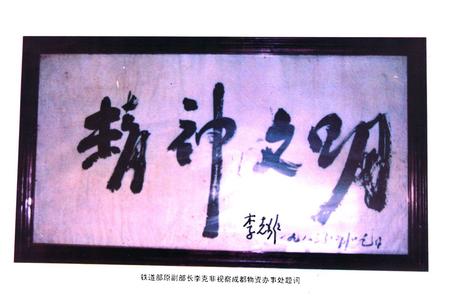 精神文明
李克非
铁道部原副部长李克非视察成都物资办事处题词